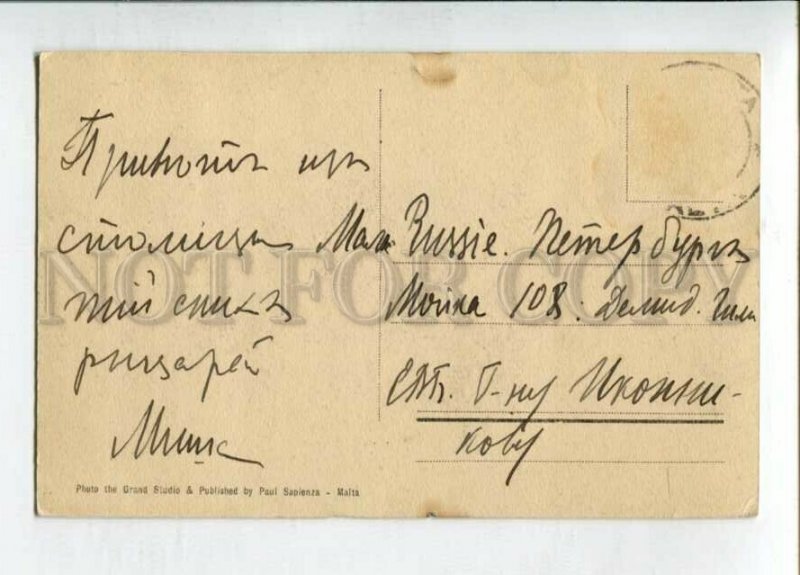 Привѣтъ изъ
столицы Маль
тійскихъ
рыцарей
Миша
Russie. Петербургъ
Мойка 108: Демид. Гим
СПб. Г-ну Иконни-
кову
Photo the Grand Studio & Published by Paul Sapienza - Malta
NOT FOR COPY